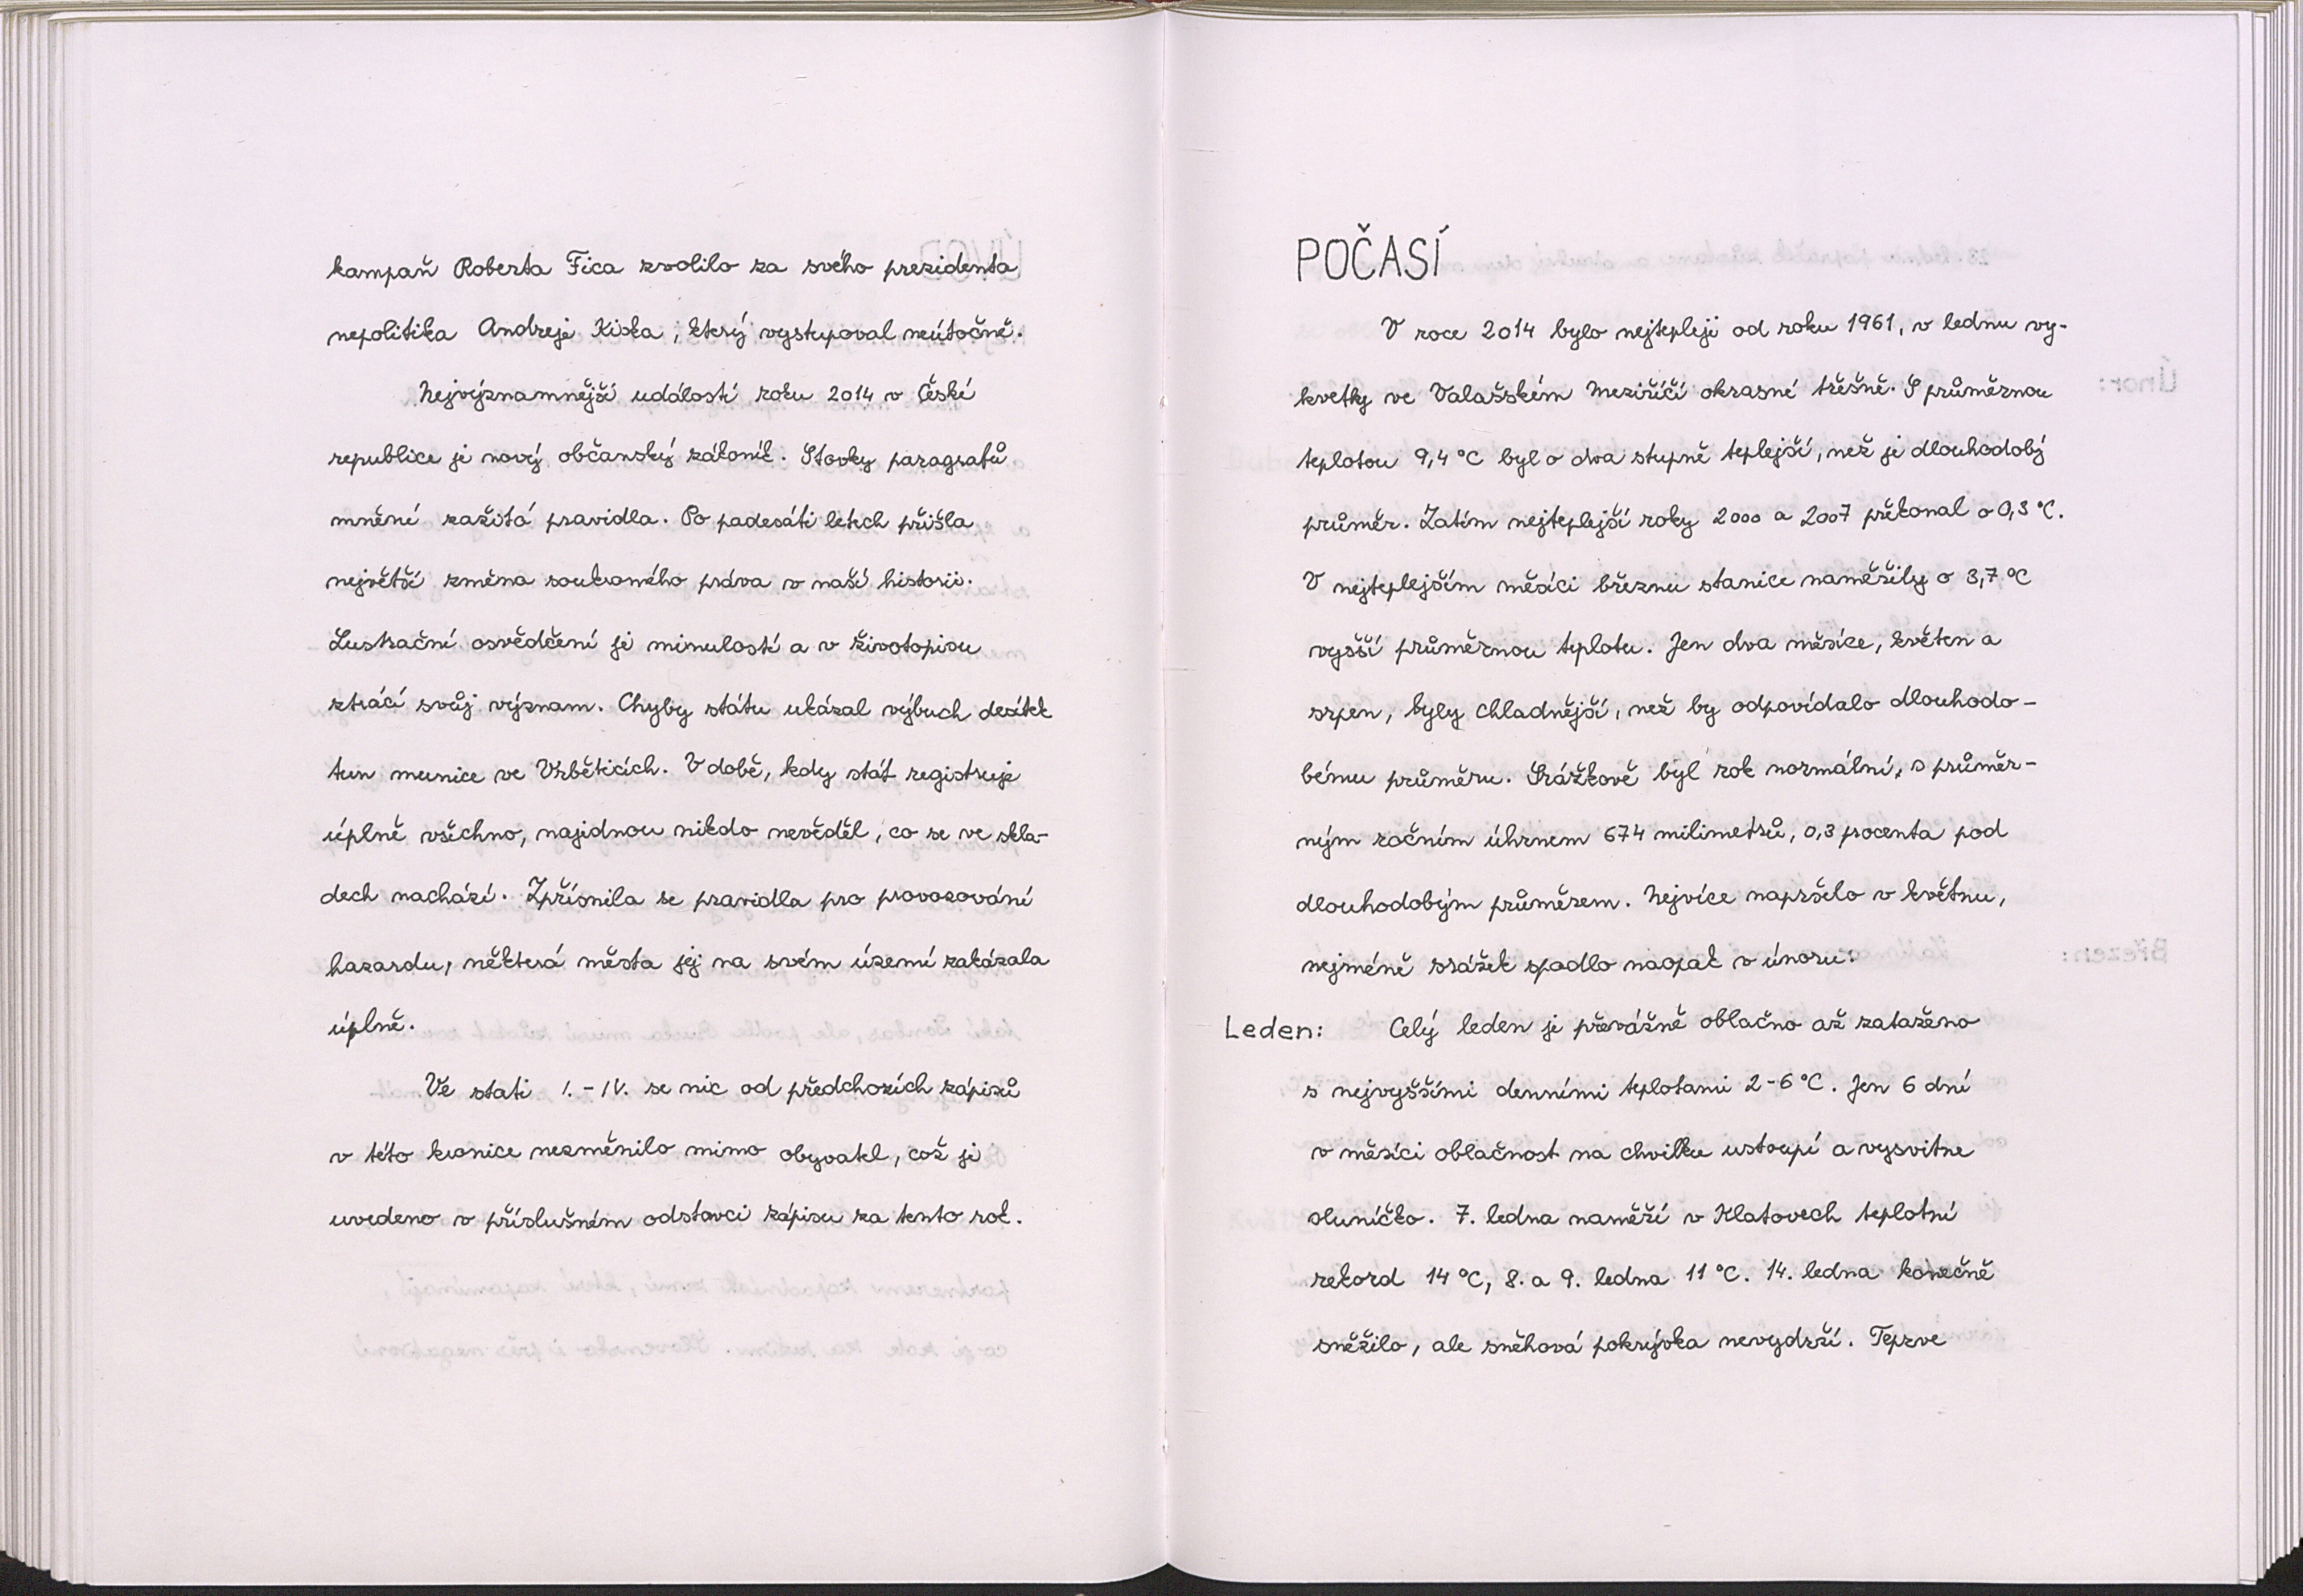 kampaň Roberta Fica zvolilo za svého prezidenta
nepolitika Andreje Kiska, který vystupoval neútočně.
Nejvýznamnější událostí roku 2014 v České
republice je nový občanský zákoník. Stovky paragrafů
mnění zažitá pravidla. Po padesáti letech přišla
největší změna soukromého práva v naší historii.
Lustrační osvědčení je minulostí a v životopisu
ztrácí svůj význam. Chyby státu ukázal výbuch desítek
tun munice ve Vrběticích. V době, kdy stát registruje
úplně všechno, najednou nikdo nevěděl, co se ve skla-
dech nachází. Zpřísnila se pravidla pro provozování
hazardu, některá města jej na svém území zakázala
úplně.
Ve stati I.-IV. se nic od předchozích zápisů
v této kronice nezměnilo mimo obyvatel, což je
uvedeno v příslušném odstavci zápisu za tento rok.
POČASÍ
V roce 2014 bylo nejtepleji od roku 1961, v lednu vy-
kvetly ve Valašském Meziříčí okrasné třešně. S průměrnou
teplotou 9,4 °C byl o dva stupně teplejší, než je dlouhodobý
průměr. Zatím nejteplejší roky 2000 a 2007 překonal o 0,3 °C.
V nejteplejším měsíci březnu stanice naměřily o 3,7 °C
vyšší průměrnou teplotu. Jen dva měsíce, květen a
srpen, byly chladnější, než by odpovídalo dlouhodo-
bému průměru. Srážkově byl rok normální, s průměr-
ným ročním úhrnem 674 milimetrů, 0,3 procenta pod
dlouhodobým průměrem. Nejvíce napršelo v květnu,
nejméně srážek spadlo naopak v únoru.
Leden: Celý leden je převážně oblačno až zataženo
s nejvyššími denními teplotami 2-6 °C. Jen 6 dní
v měsíci oblačnost na chvilku ustoupí a vysvitne
sluníčko. 7. ledna naměří v Klatovech teplotní
rekord 14 °C, 8. a 9. ledna 11 °C. 14. ledna konečně
sněžilo, ale sněhová pokrývka nevydrží. Teprve